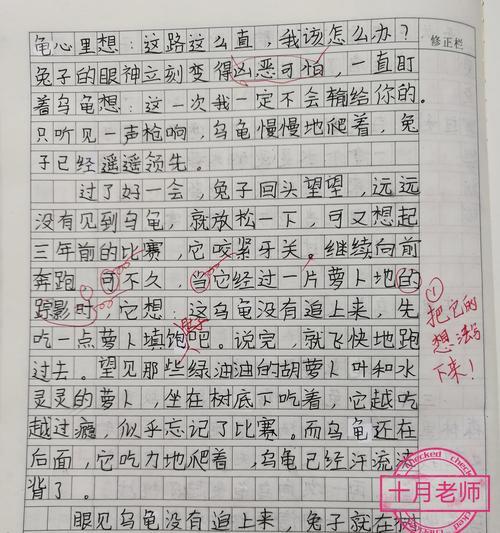 龟心里想：这路这么直，我该怎么办？
修正栏
兔子的眼神立刻变得凶恶可怕，一直盯
着乌龟想：这一次我一定不会输给你的。
只听见一声枪响，乌龟慢慢地爬着，兔
子已经遥遥领先。
过了好一会，兔子回头望望，远远
没有见到乌龟，就放松一下，可又想起
三年前的比赛，它咬紧牙关。继续向前
奔跑。可不久，当它经过一片萝卜地的
踪影时，它想：这乌龟没有追上来，先
吃一点萝卜填饱吧。说完，就飞快地跑
肚子
过去。望见那些绿油油的胡萝卜叶和水
灵灵的萝卜，坐在树底下吃着，它越吃
越过瘾，似乎忘记了比赛。而乌龟还在
后面，它吃力地爬着，乌龟已经汗流浃
背了。
眼见乌龟没有追上来，兔子就在
①
把它的
想法写
下来！
Checked
十月老师
checked